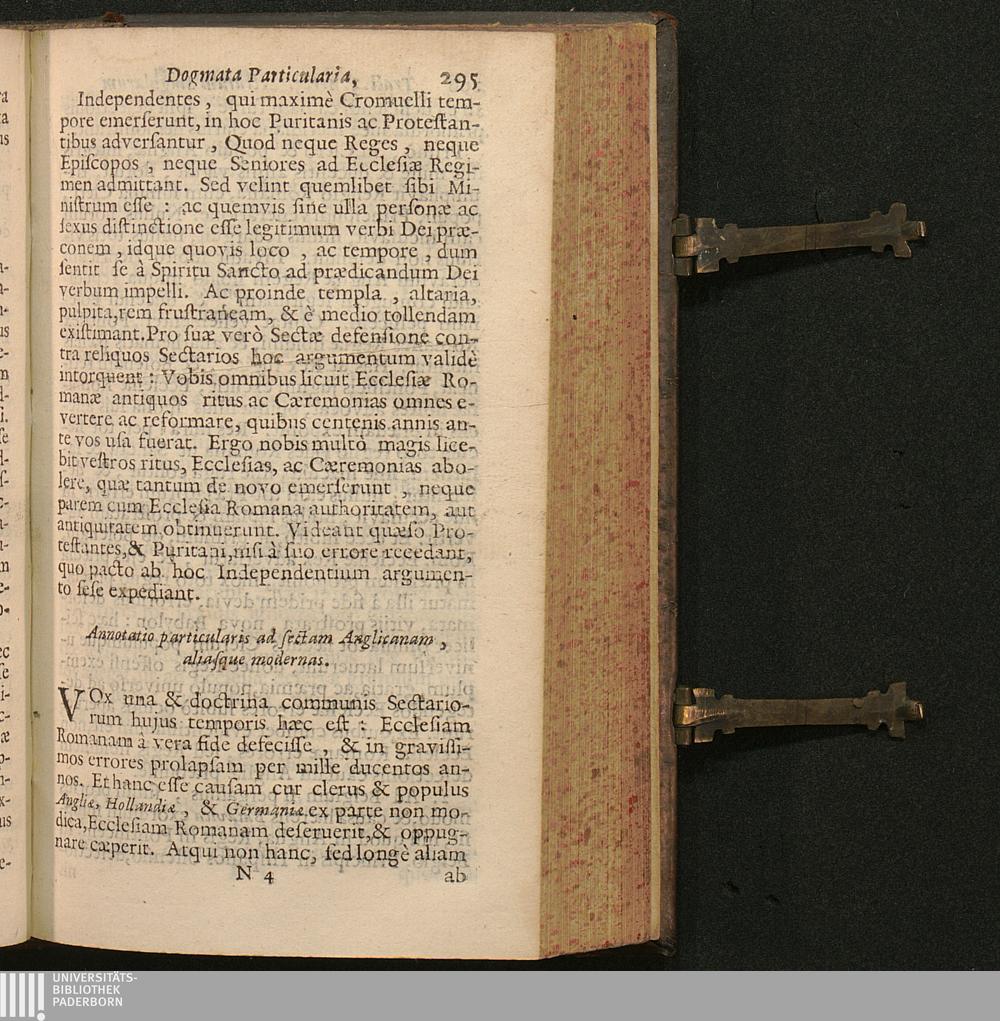 Dogmata Particularia, 295
Independentes, qui maximè Cromuelli tem-
pore emerſerunt, in hoc Puritanis ac Proteſtan-
tibus adverſantur, Quod neque Reges, neque
Epiſcopos, neque Seniores ad Eccleſiæ Regi-
men admittant. Sed velint quemlibet ſibi Mi-
niſtrum eſſe : ac quemvis ſine ulla perſonæ ac
ſexus diſtinctione eſſe legitimum verbi Dei præ-
conem, idque quovis loco, ac tempore, dum
ſentit ſe à Spiritu Sancto ad prædicandum Dei
verbum impelli. Ac proinde templa, altaria,
pulpita, rem fruſtraneam, & è medio tollendam
exiſtimant. Pro ſuæ verò Sectæ defenſione con-
tra reliquos Sectarios hoc argumentum validè
intorquent : Vobis omnibus licuit Eccleſiæ Ro-
manæ antiquos ritus ac Cæremonias omnes e-
vertere ac reformare, quibus centenis annis an-
te vos uſa fuerat. Ergo nobis multò magis lice-
bit veſtros ritus, Eccleſias, ac Cæremonias abo-
lere, quæ tantum de novo emerſerunt, neque
parem cum Eccleſia Romana authoritatem, aut
antiquitatem obtinuerunt. Videant quæſo Pro-
teſtantes, & Puritani, niſi à ſuo errore recedant,
quo pacto ab hoc Independentium argumen-
to ſeſe expediant.
Annotatio particularis ad ſectam Anglicanam,
aliaſque modernas.
VOx una & doctrina communis Sectario-
rum hujus temporis hæc eſt : Eccleſiam
Romanam à vera fide defeciſſe, & in graviſſi-
mos errores prolapſam per mille ducentos an-
nos. Et hanc eſſe cauſam cur clerus & populus
Angliæ, Hollandiæ, & Germaniæ ex parte non mo-
dica, Eccleſiam Romanam deſeruerit, & oppug-
nare cæperit. Atqui non hanc, ſed longè aliam
N 4 ab
UNIVERSITÄTS-
BIBLIOTHEK
PADERBORN